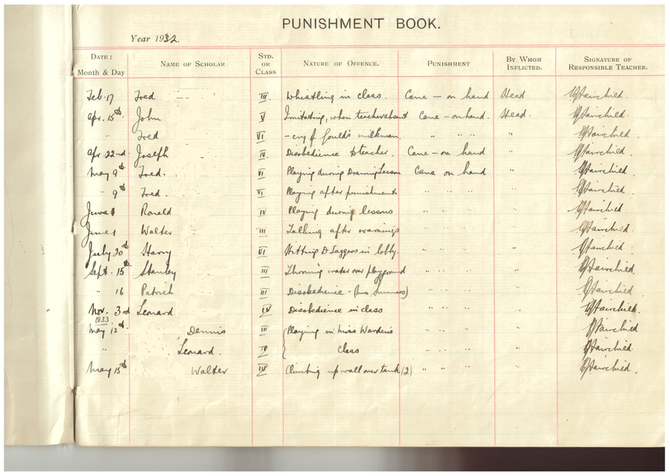 PUNISHMENT BOOK.
Year 1932.
DATE: Month & Day NAME OF SCHOLAR STD. OR CLASS NATURE OF OFFENCE. PUNISHMENT BY WHOM INFLICTED. SIGNATURE OF RESPONSIBLE TEACHER.
Feb. 17 Fred III. Whistling in class. Cane - on hand Head GFairchild
Apr. 15th John V Imitating, when teacher about Cane - on hand. Head. GFairchild.
" Fred VI - cry of milkman. " " " " GFairchild.
Apr. 22nd Joseph IV Disobedience to teacher. Cane - on hand " GFairchild.
May 9th Fred. VI Playing during Drawing Lesson Cane on hand " GFairchild.
" 9th Fred. VI Playing after punishment " " " " GFairchild.
June 1 Ronald IV Playing during lessons " " " " GFairchild
June 1 Walter III Talking after warnings " " " " GFairchild.
July 20th Harry VI Hitting D in lobby. " " " " GFairchild
Sept. 15th Stanley III Throwing water over playground " " " " GFairchild.
" 16 Patrick III Disobedience - (Miss) " " " " GFairchild.
Nov. 3rd Leonard IV Disobedience in class " " " " GFairchild.
1933
May 12th Dennis III Playing in Miss " " " " GFairchild
" Leonard. IV Class " " " " GFairchild.
May 15th Walter IV Climbing up wall over tank (2) " " " " GFairchild.